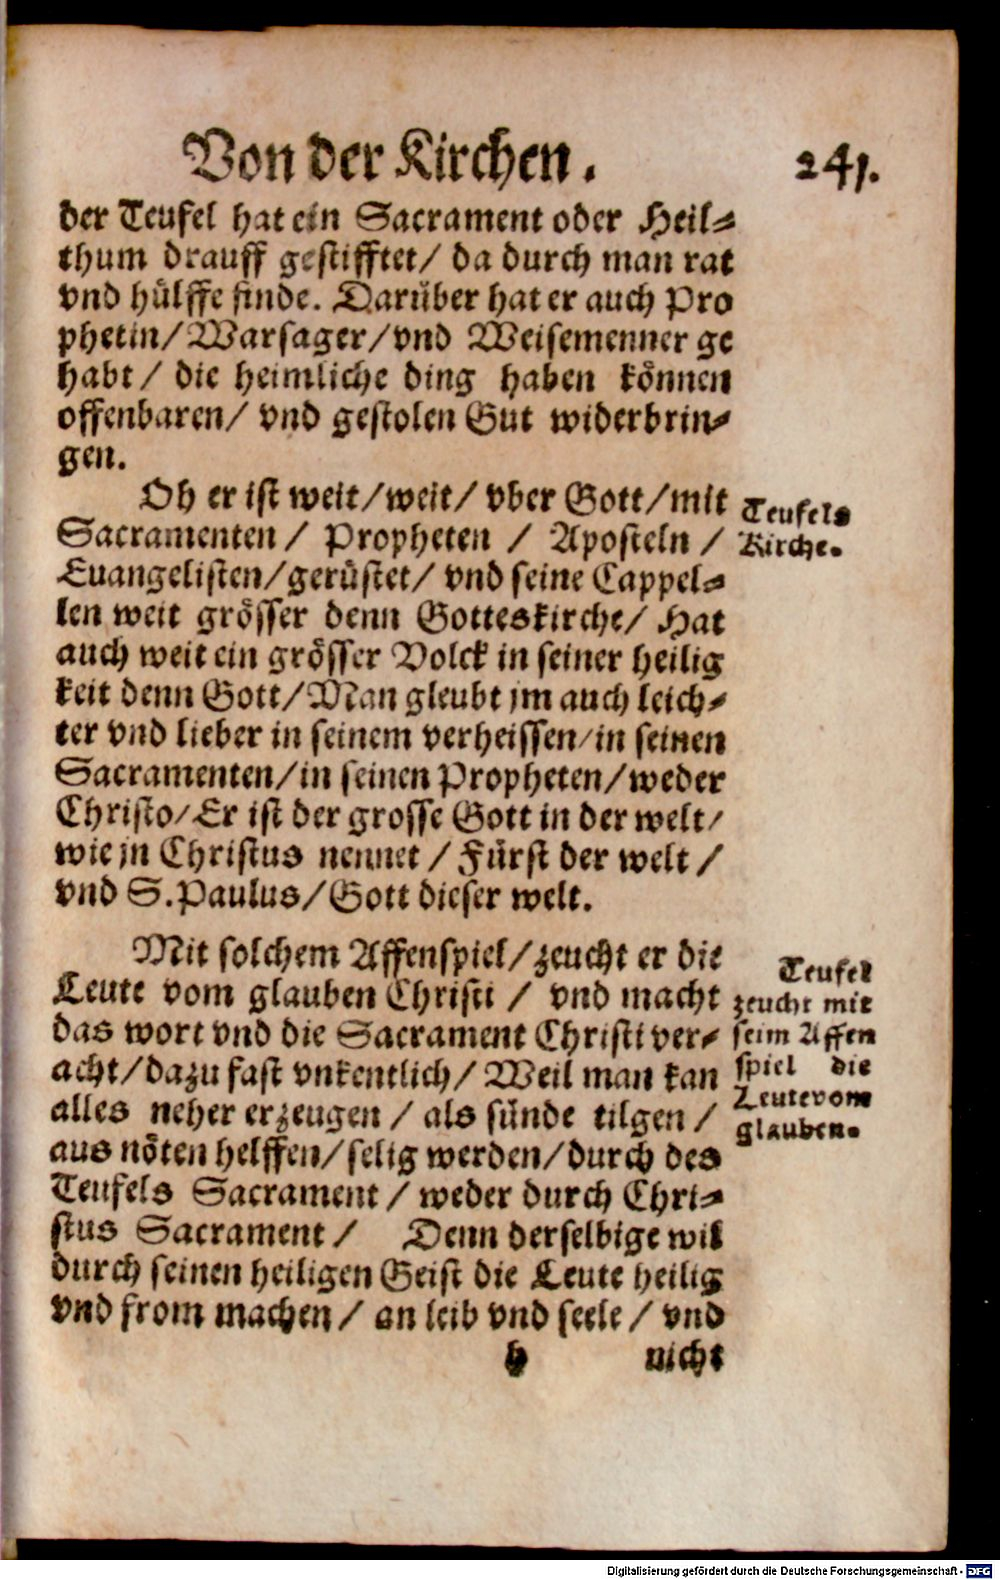 Von der Kirchen. 241.
der Teufel hat ein Sacrament oder Heil-
thum drauff gestifftet/ da durch man rat
vnd hülffe finde. Darüber hat er auch Pro
phetin/ Warsager/ vnd Weisemenner ge
habt/ die heimliche ding haben können
offenbaren/ vnd gestolen Gut widerbrin-
gen.
Oh er ist weit/ weit/ vber Gott/ mit
Sacramenten/ Propheten/ Aposteln/
Euangelisten/ gerüstet/ vnd seine Cappel-
len weit grösser denn Gotteskirche/ Hat
auch weit ein grösser Volck in seiner heilig
keit denn Gott/ Man gleubt jm auch leich-
ter vnd lieber in seinem verheissen/ in seinen
Sacramenten/ in seinen Propheten/ weder
Christo/ Er ist der grosse Gott in der welt/
wie jn Christus nennet/ Fürst der welt/
vnd S. Paulus/ Gott dieser welt.
Teufels
Kirche.
Mit solchem Affenspiel/ zeucht er die
Leute vom glauben Christi/ vnd macht
das wort vnd die Sacrament Christi ver-
acht/ dazu fast vnkentlich/ Weil man kan
alles neher erzeugen/ als sünde tilgen/
aus nöten helffen/ selig werden/ durch des
Teufels Sacrament/ weder durch Chri-
stus Sacrament/ Denn derselbige wil
durch seinen heiligen Geist die Leute heilig
vnd from machen/ an leib vnd seele/ vnd
Teufel
zeucht mit
seim Affen
spiel die
Leute vom
glauben.
h nicht
Digitalisierung gefördert durch die Deutsche Forschungsgemeinschaft - DFG